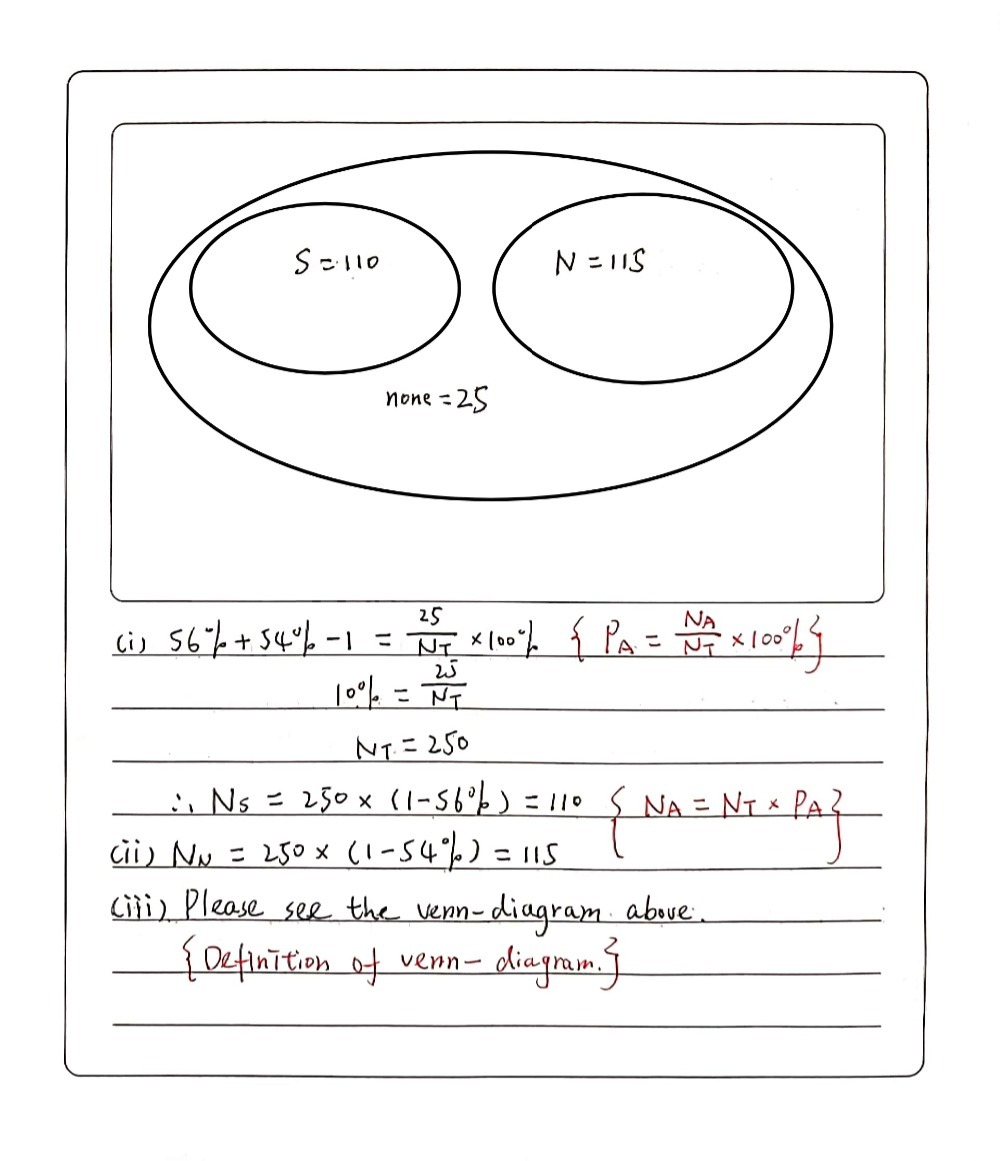 S = 110
N = 115
none = 25
(i) 56% + 54% - 1 = 25/NT × 100% { PA = NA/NT × 100% }
10% = 25/NT
NT = 250
∴ NS = 250 × (1-56%) = 110 { NA = NT × PA }
(ii) NN = 250 × (1-54%) = 115
(iii) Please see the venn-diagram above.
{ Definition of venn-diagram. }